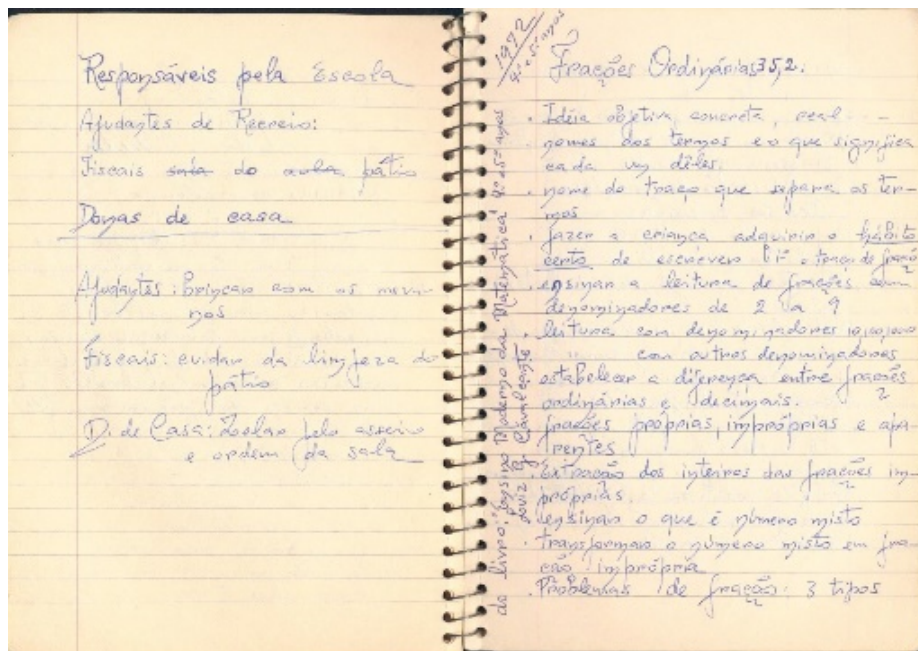 Responsáveis pela Escola
Ajudantes de Recreio:
Fiscais sala de aula pátio
Donas de casa
Ajudantes: brincar com os meni-
nos
Fiscais: cuidar da limpeza do
pátio
D. de Casa: Zelar pelo asseio
e ordem da sala
1972
4º e 5º anos
Frações Ordinárias 35,2.
. Idéia objetiva, concreta, real
. nomes dos termos e o que significa
cada um dêles.
. nome do traço que separa os ter-
mos
. fazer a criança adquirir o hábito
certo de escrever o traço de fração
. ensinar a leitura de frações com
denominadores de 2 a 9
. leitura com denominadores 10,100,1000
" com outros denominadores
. estabelecer a diferença entre frações
ordinárias e decimais.
. frações próprias, impróprias e apa-
rentes
. Extração dos inteiros das frações im-
próprias
. ensinar o que é número misto
. transformar o número misto em fra-
ção imprópria
. Problemas de fração: 3 tipos
do livro: Ensino Moderno da Matemática 4º e 5º anos
Luiz G. Cavalcante